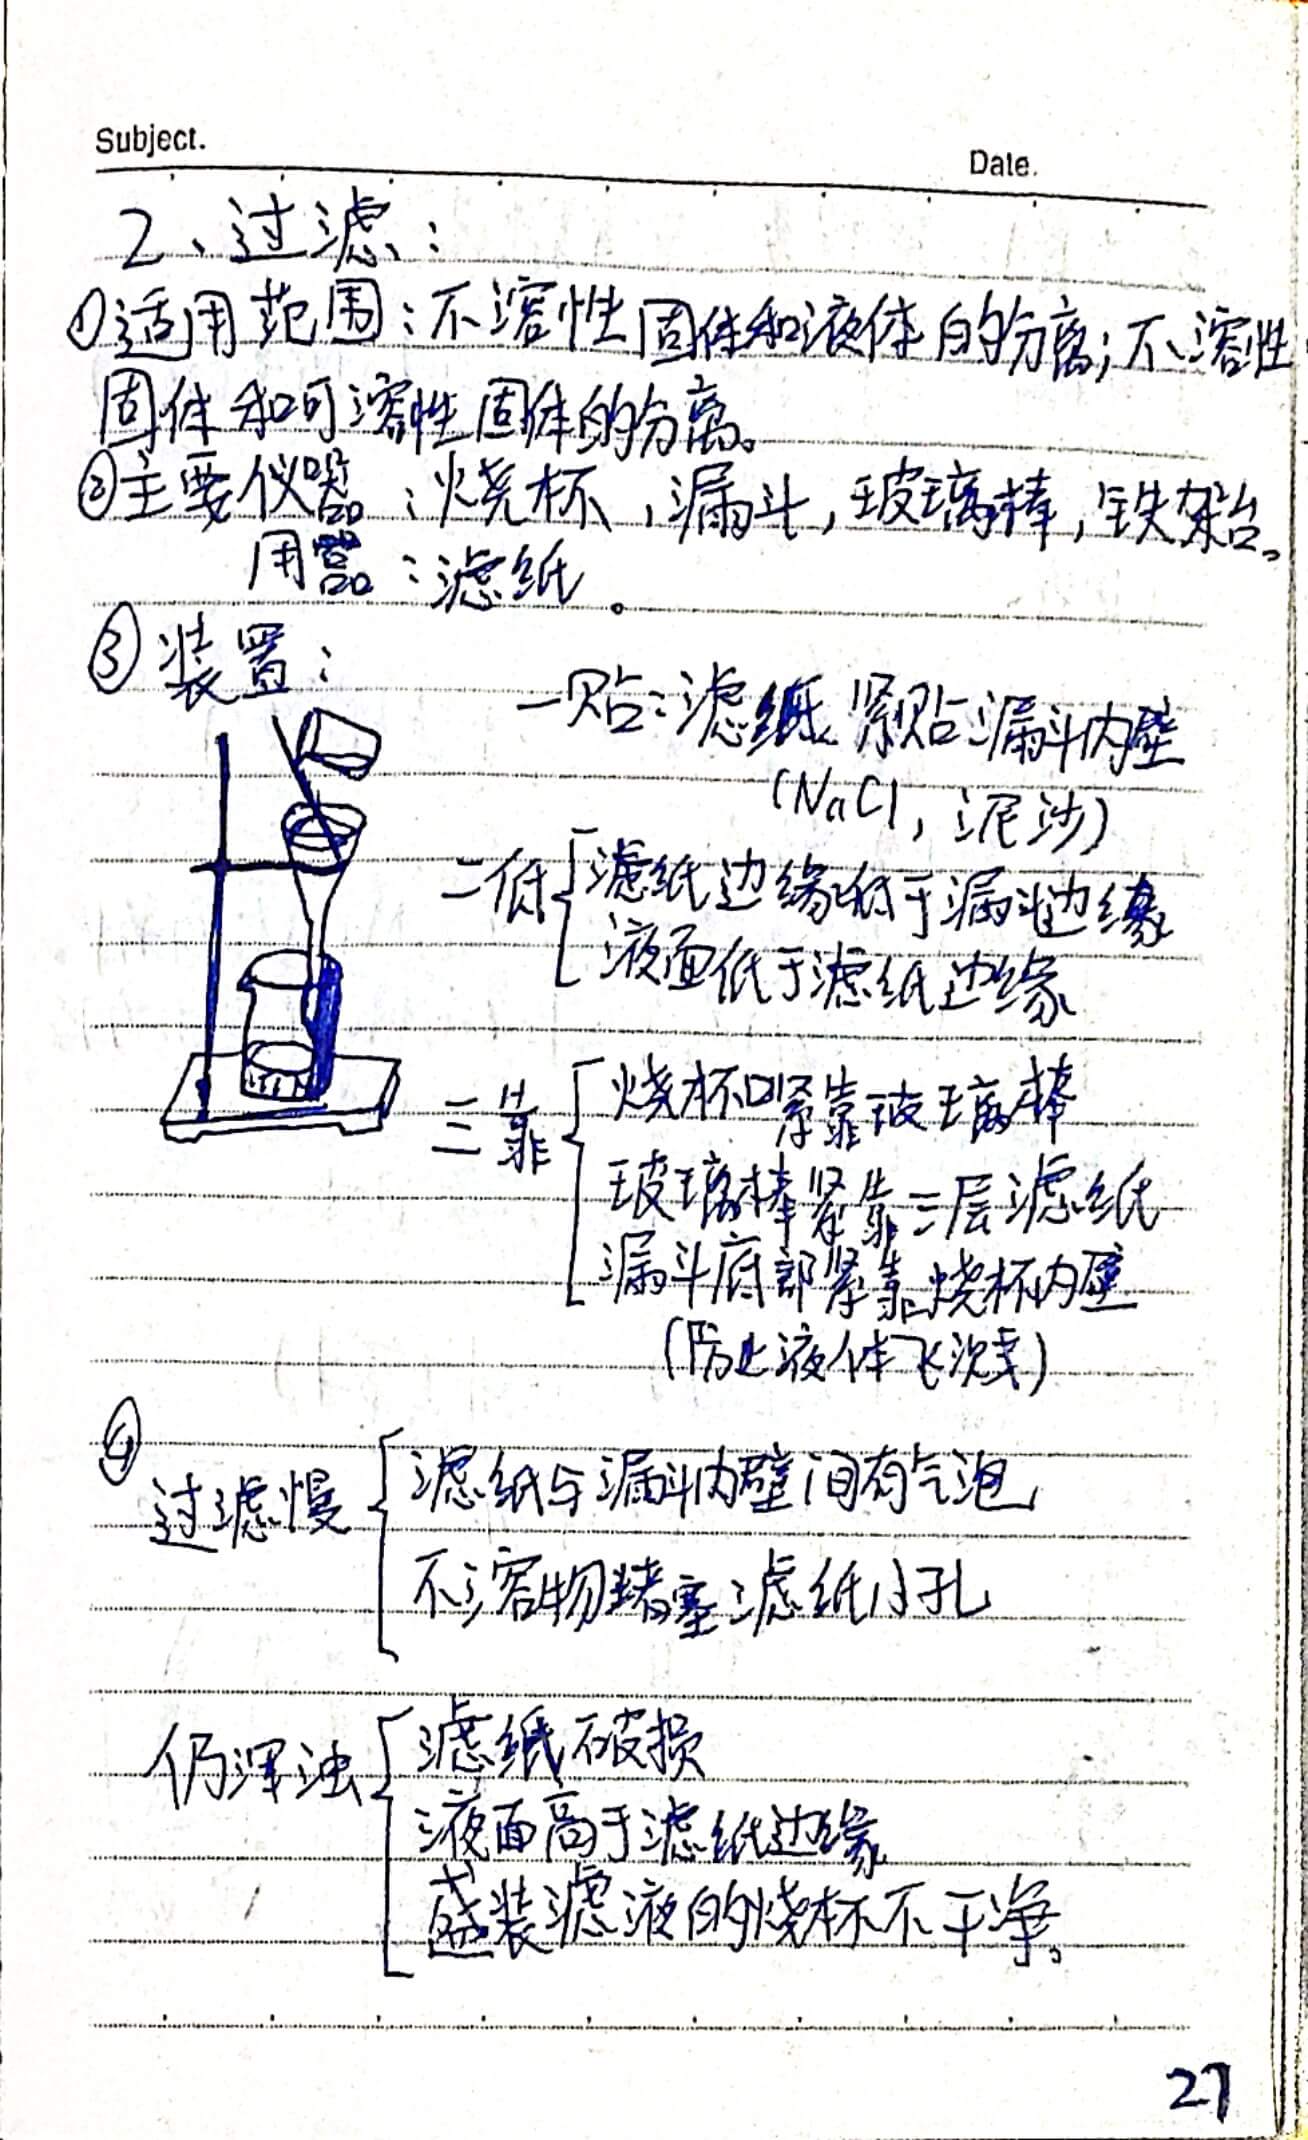 Subject.
Date.
2、过滤：
①适用范围：不溶性固体和液体的分离；不溶性
固体和可溶性固体的分离。
②主要仪器：烧杯，漏斗，玻璃棒，铁架台。
用器：滤纸。
③装置：
一贴：滤纸紧贴漏斗内壁
(NaCl，泥沙)
二低 滤纸边缘低于漏斗边缘
液面低于滤纸边缘
三靠 烧杯口紧靠玻璃棒
玻璃棒紧靠三层滤纸
漏斗底部紧靠烧杯内壁
(防止液体飞溅)
④
过滤慢 滤纸与漏斗内壁间有气泡
不溶物堵塞滤纸小孔
仍浑浊 滤纸破损
液面高于滤纸边缘
盛装滤液的烧杯不干净。
27